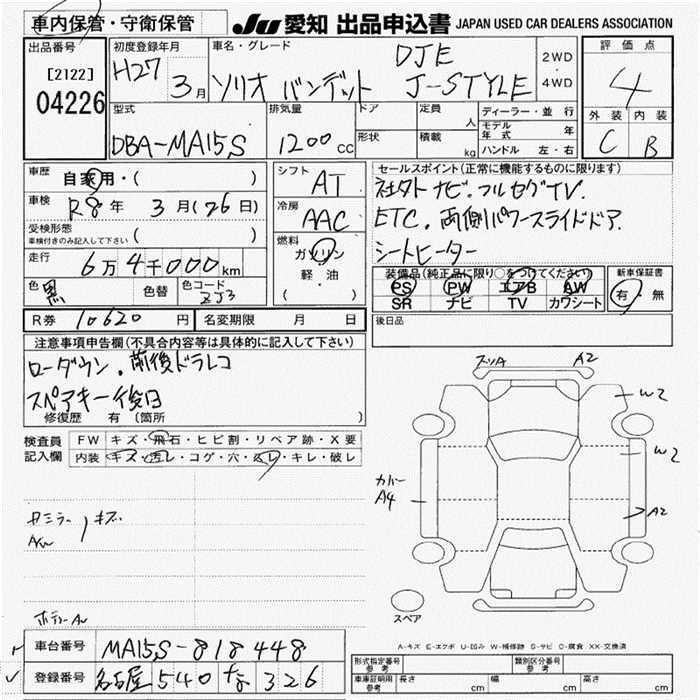 車内保管・守衛保管
JU 愛知 出品申込書 JAPAN USED CAR DEALERS ASSOCIATION
出品番号
[2122]
04226
初度登録年月
H27 3月
車名・グレード
DJE
ソリオ バンデット J-STYLE
2WD
・
4WD
評価点
4
外装 内装
C B
型式
DBA-MA15S
排気量
1200 CC
ドア
形状
定員
人
積載
kg
ディーラー・並行
モデル年式 年
ハンドル 左・右
車歴
自家用・( )
車検
R8年 3月(26日)
受検形態
車検付きのみ記入して下さい
( )
走行
6万4千000km
色
黒
色替
色コード
ZJ3
シフト
AT
冷房
AAC
燃料
ガソリン
軽・油
( )
セールスポイント(正常に機能するものに限ります)
社外ナビ.フルセグTV.
ETC.両側パワースライドドア.
シートヒーター
装備品(純正品に限り○をつけてください)
PS PW エアB AW
SR ナビ TV カワシート
新車保証書
有・無
R券 10620円
名変期限 月 日
後日品
注意事項申告欄(不具合内容等は具体的に記入して下さい)
ローダウン.前後ドラレコ
スペアキー後日
修復歴 有 (箇所 )
検査員
記入欄
FW キズ・飛石・ヒビ割・リペア跡・X要
内装 キズ・汚レ・コゲ・穴・スレ・キレ・破レ
スリA A2
W2
W2
カバー
A4
A2
サミラー
Aw
キズ
スペア
A-キズ E-エクボ U-凹み W-補修跡 S-サビ C-腐食 XX-交換済
車台番号 MA15S-818448
登録番号 名古屋 540 な 326
形式指定番号
参考
類別区分番号
参考
車庫証明用
参考
長さ cm 幅 cm 高さ cm